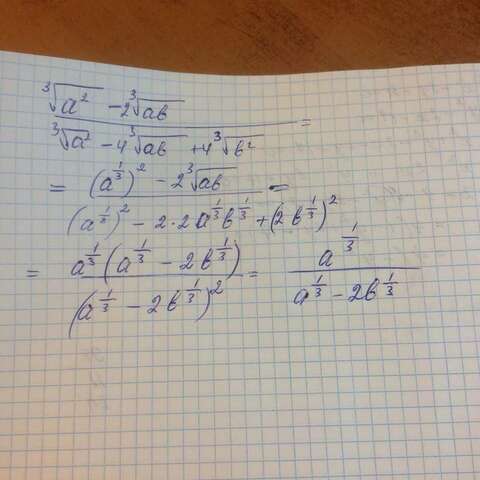 ∛a² - 2∛ab
∛a² - 4∛ab + 4∛b² =
= (a^{1/3})² - 2∛ab =
(a^{1/3})² - 2·2a^{1/3}b^{1/3} + (2b^{1/3})²
= a^{1/3}(a^{1/3} - 2b^{1/3}) = a^{1/3}
(a^{1/3} - 2b^{1/3})² a^{1/3} - 2b^{1/3}